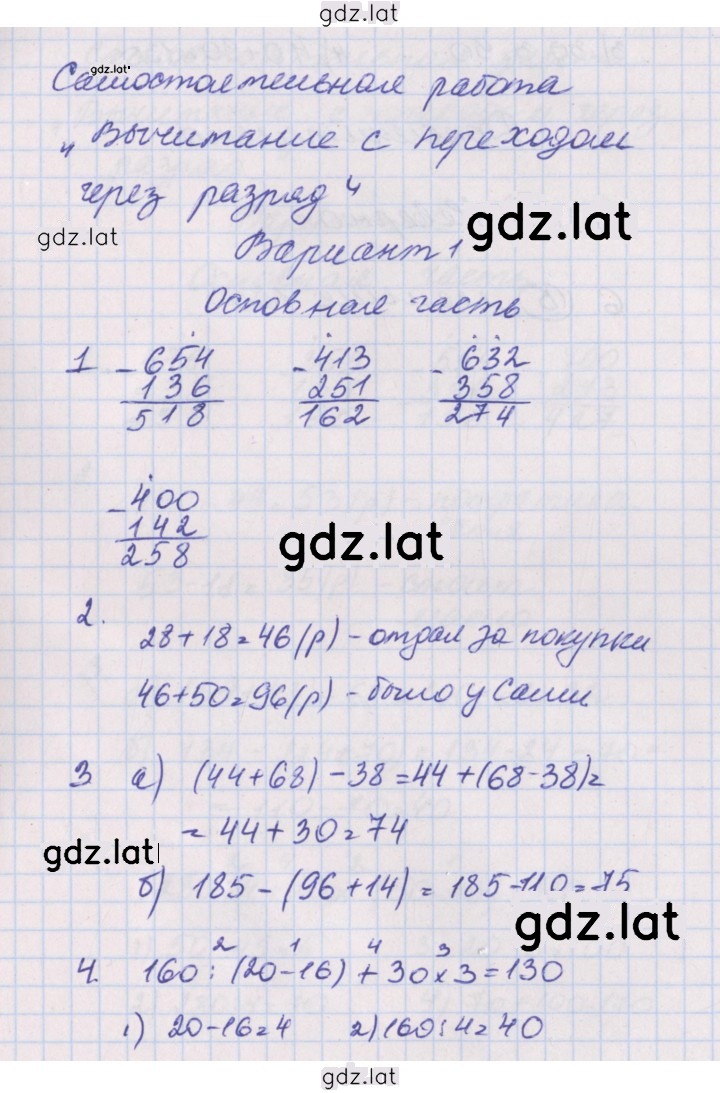 gdz.lat
gdz.lat
Самостоятельная работа
„Вычитание с переходом
через разряд"
gdz.lat
gdz.lat
Вариант 1
Основная часть
1 - 654 - 413 - 632
136 251 358
518 162 274
- 400
142
258
gdz.lat
2.
28+18=46(р) - отдал за покупки
46+50=96(р) - было у Саши
3 а) (44+68) - 38 = 44 + (68-38)=
= 44 + 30 = 74
gdz.lat
б) 185 - (96 + 14) = 185-110 = 75
gdz.lat
2 1 4 3
4. 160 : (20-16) + 30 × 3 = 130
1) 20-16=4 2) 160:4=40
gdz.lat